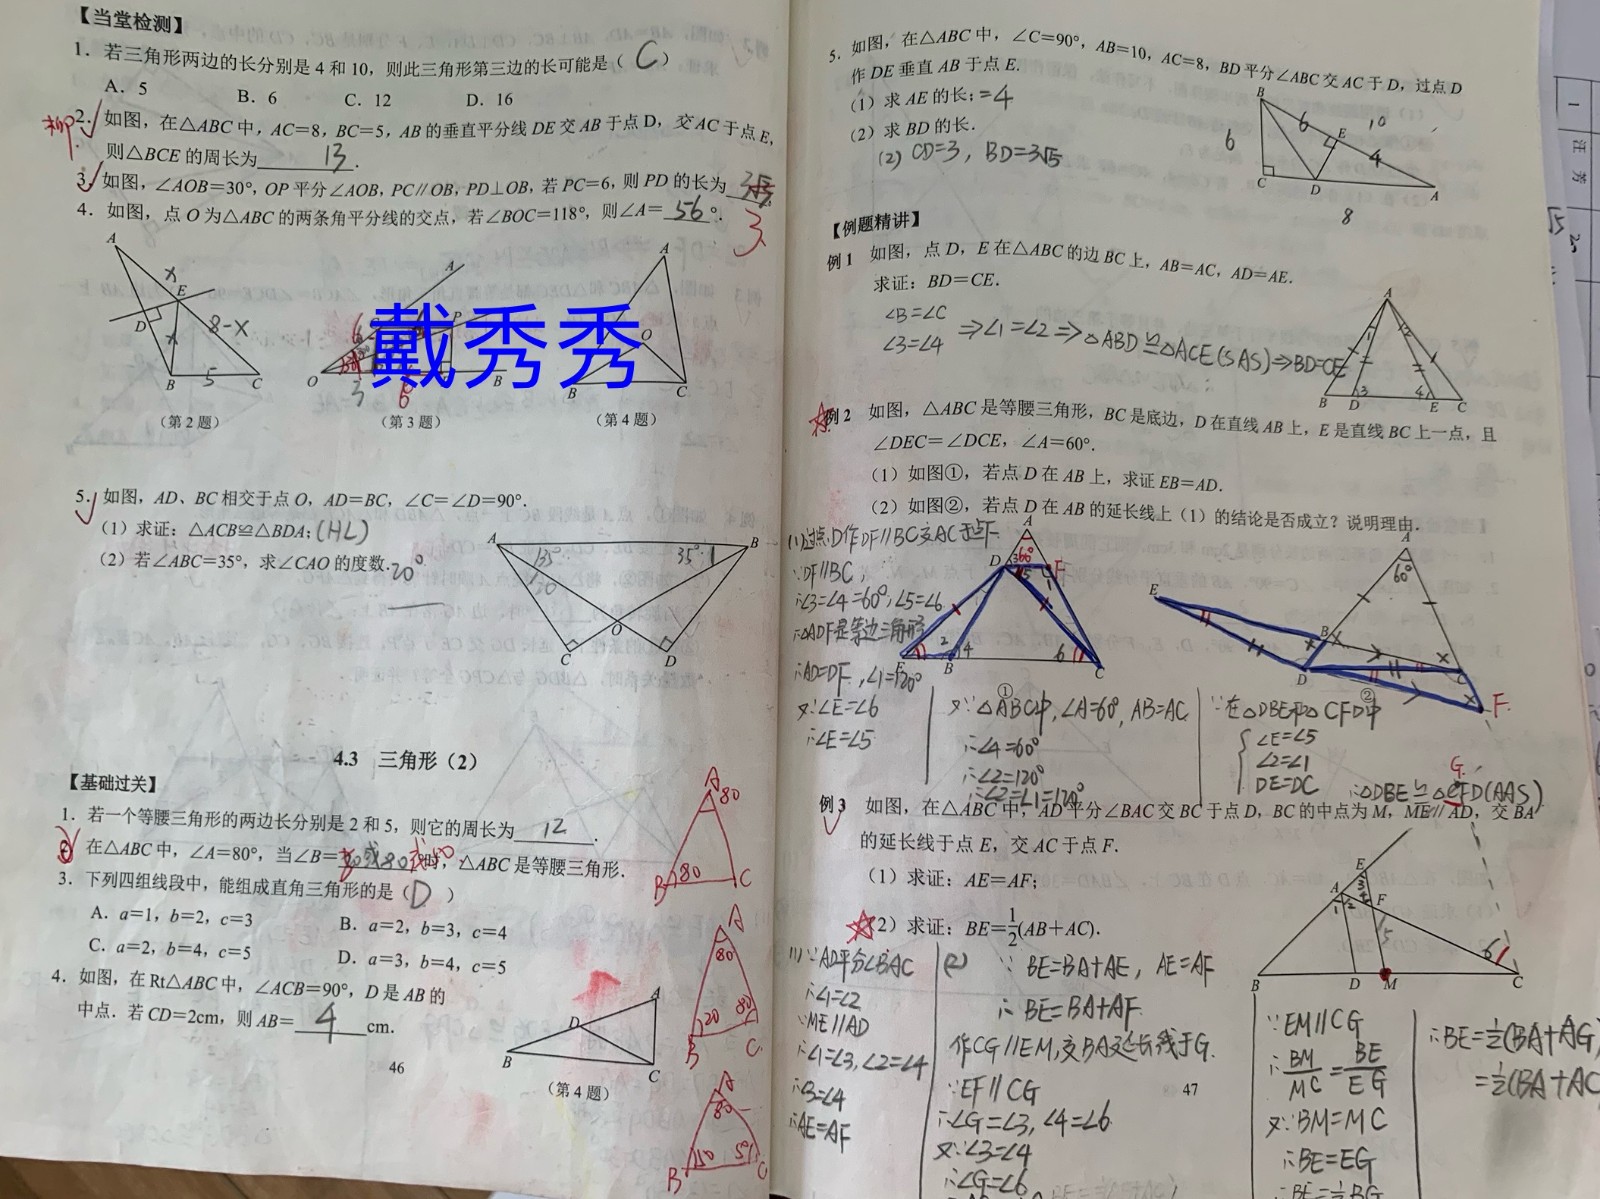 【当堂检测】
1. 若三角形两边的长分别是 4 和 10，则此三角形第三边的长可能是（ C ）
A. 5 B. 6 C. 12 D. 16
2. 如图，在△ABC 中，AC=8，BC=5，AB 的垂直平分线 DE 交 AB 于点 D，交 AC 于点 E，
则△BCE 的周长为 13 .
3. 如图，∠AOB=30°，OP 平分∠AOB，PC∥OB，PD⊥OB，若 PC=6，则 PD 的长为
3
4. 如图，点 O 为△ABC 的两条角平分线的交点，若∠BOC=118°，则∠A= 56 °.
A
x
E
D
8-x
x
B 5 C
A
P
O
B
3
6
A
O
B C
戴秀秀
（第 2 题） （第 3 题） （第 4 题）
5. 如图，AD、BC 相交于点 O，AD=BC，∠C=∠D=90°.
（1）求证：△ACB≌△BDA; (HL)
（2）若∠ABC=35°，求∠CAO 的度数. 20°
A B
35° 35°
O
C D
4.3 三角形（2）
【基础过关】
1. 若一个等腰三角形的两边长分别是 2 和 5，则它的周长为 12 .
2. 在△ABC 中，∠A=80°，当∠B= 时，△ABC 是等腰三角形.
3. 下列四组线段中，能组成直角三角形的是（ D ）
A. a=1，b=2，c=3 B. a=2，b=3，c=4
C. a=2，b=4，c=5 D. a=3，b=4，c=5
4. 如图，在 Rt△ABC 中，∠ACB=90°，D 是 AB 的
中点. 若 CD=2cm，则 AB= 4 cm.
A
D
B
C
（第 4 题）
46
A
80
80
B C
A
80
20 80
B C
A
80
50 50
B C
5. 如图，在△ABC 中，∠C=90°，AB=10，AC=8，BD 平分∠ABC 交 AC 于 D，过点 D
作 DE 垂直 AB 于点 E.
（1）求 AE 的长; =4
（2）求 BD 的长.
(2) CD=3，BD=3√5
B
6 10
6 E
4
C D A
8
【例题精讲】
例 1 如图，点 D，E 在△ABC 的边 BC 上，AB=AC，AD=AE.
求证：BD=CE.
∠B=∠C
∠3=∠4
⇒∠1=∠2⇒△ABD≌△ACE(SAS)⇒BD=CE
A
1 2
3 4
B D E C
例 2 如图，△ABC 是等腰三角形，BC 是底边，D 在直线 AB 上，E 是直线 BC 上一点，且
∠DEC=∠DCE，∠A=60°.
（1）如图①，若点 D 在 AB 上，求证 EB=AD.
（2）如图②，若点 D 在 AB 的延长线上（1）的结论是否成立？说明理由.
(1)过点D作DF∥BC交AC于点F.
∵DF∥BC，
∴∠3=∠4=60°，∠5=∠6
∴△ADF是等边三角形
∴AD=DF，∠1=120°
又∵∠E=∠6
∴∠E=∠5
A
60°
D 3 F
5
2 4 6
E B C
①
A
60°
E
B
D
C
F
②
又∵△ABC中，∠A=60°，AB=AC
∴∠4=60°
∴∠2=120°
∴∠2=∠1=120°
∵在△DBE和△CFD中
∠E=∠5
∠2=∠1
DE=DC
∴△DBE≌△CFD(AAS)
G
例 3 如图，在△ABC 中，AD 平分∠BAC 交 BC 于点 D，BC 的中点为 M，ME∥AD，交 BA
的延长线于点 E，交 AC 于点 F.
（1）求证：AE=AF;
（2）求证：BE=1/2(AB+AC).
E
3
A 4 F
1 2
5 6
B D M C
(1)∵AD平分∠BAC
∴∠1=∠2
∵ME∥AD
∴∠1=∠3，∠2=∠4
∴∠3=∠4
∴AE=AF
(2) ∵ BE=BA+AE，AE=AF
∴ BE=BA+AF.
作CG∥EM，交BA延长线于G.
∵EF∥CG
∴∠G=∠3，∠4=∠6
又∵∠3=∠4
∴∠G=∠6
∵EM∥CG
∴BM/MC=BE/EG
又∵BM=MC
∴BE=EG
∴BE=1/2BG
∴BE=1/2(BA+AG)
=1/2(BA+AC
47